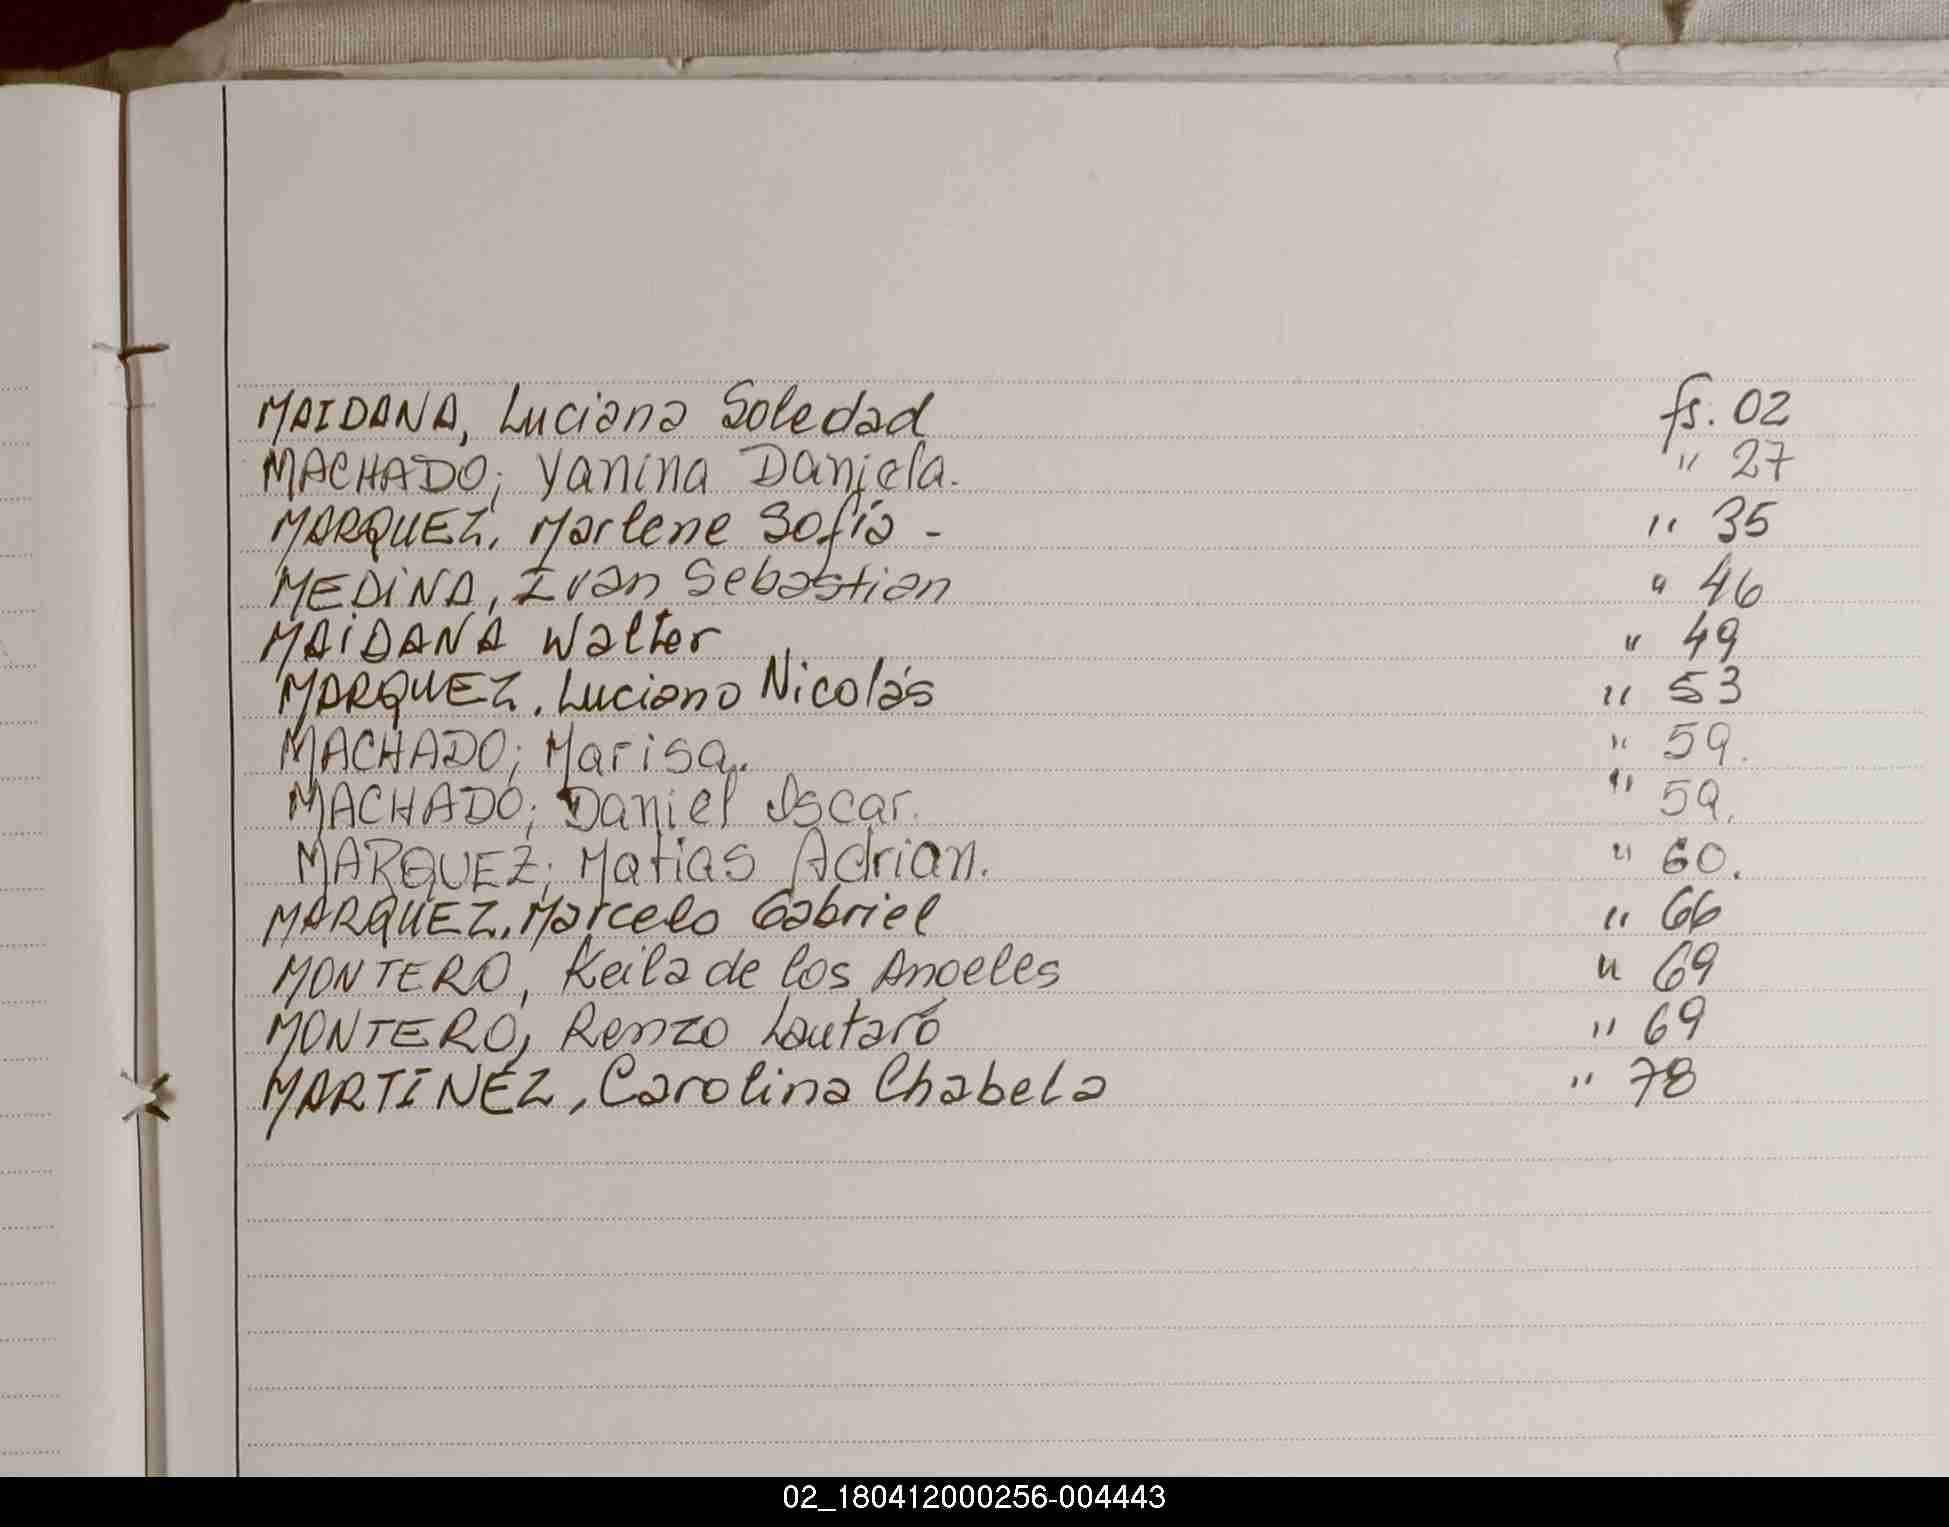 MAIDANA, Luciana Soledad fs. 02
MACHADO; Yanina Daniela. " 27
MARQUEZ, Marlene Sofía - " 35
MEDiNA, Ivan Sebastian " 46
MAiDANA Walter " 49
MARQUEZ, Luciano Nicolás " 53
MACHADO; Marisa. " 59.
MACHADO; Daniel Oscar. " 59.
MARQUEZ; Matias Adrian. " 60.
MARQUEZ, Marcelo Gabriel " 66
MONTERO, Keila de los Angeles " 69
MONTERO, Renzo Lautaro " 69
MARTINEZ, Carolina Chabela " 78
02_180412000256-004443